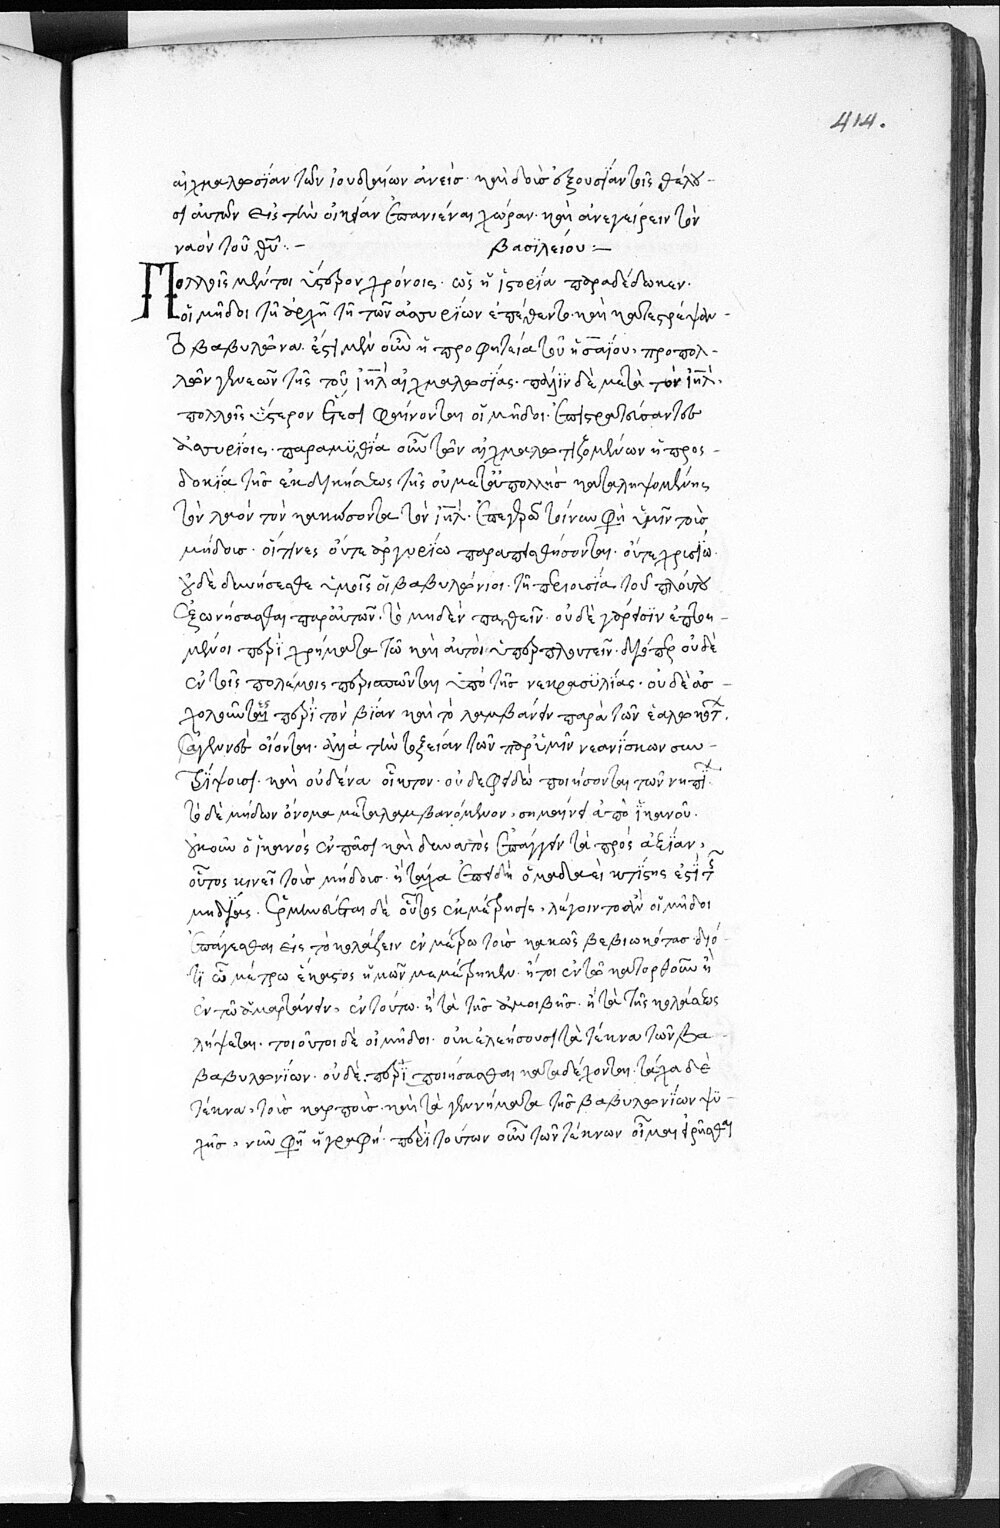 414.
αἰχμαλωσίαν τῶν ἰουδαίων ἀνείς· καὶ δοὺς ἐξουσίαν τοῖς θέλου-
σι αὐτῶν εἰς τὴν οἰκείαν ἐπανιέναι χώραν· καὶ ἀνεγείρειν τὸν
ναὸν τοῦ θυ̅:- βασιλείου:-
Πολλοῖς μέντοι ὕστερον χρόνοις· ὡς ἡ ἱστορία παραδέδωκεν·
οἱ μῆδοι τῇ ἀρχῇ τῇ τῶν ἀσσυρίων ἐπέθεντο καὶ κατεστρέψαν-
το βαβυλῶνα· ἔστι μὲν οὖν ἡ προφητεία τοῦ ἡσαΐου, προπολ-
λῶν γενεῶν τῆς τοῦ ἰη̅λ αἰχμαλωσίας· πάλιν δὲ μετὰ τὸν ἰη̅λ·
πολλοῖς ὕστερον ἔτεσι φαίνονται οἱ μῆδοι· ἐπιστρατεύσαντες
ἀσσυρίοις· παραμυθία οὖν τῶν αἰχμαλωτιζομένων ἡ προσ-
δοκία τῆς ἐκδικήσεως τῆς οὐ μεταπολλῆς καταληψομένης
τὸν λαὸν τὸν κακώσοντα τὸν ἰη̅λ· ἐπεγείρω τοίνυν φη ὑμῖν τοὺς
μήδους· οἵτινες οὔτε ἀργυρίω παραπεισθήσονται· οὔτε χρυσίω·
οὐδὲ δυνήσεσθε ὑμεῖς οἱ βαβυλώνιοι· τῇ περιουσία τοῦ πλούτου
ἐξωνήσασθαι παρ' αὐτῶν· τὸ μηδὲν παθεῖν· οὐδὲ γάρ εἰσιν ἐπτοη-
μένοι περὶ χρήματα τῶ καὶ αὐτοὶ ὑπερπλουτεῖν· διόπερ οὐδὲ
ἐν τοῖς πολέμοις περισπῶνται ὑπὸ τῆς νεκροσυλίας· οὐδὲ ἀσ-
χολοῦνται περὶ τὸν βίαν καὶ τὸ λαμβάνειν παρὰ τῶν ἑαλωκότ
ἀγεννὲς οἴονται· ἀλλὰ τὴν τοξείαν τῶν παρ' ὑμῖν νεανίσκων συν-
τρίψουσι· καὶ οὐδένα οἶκτον· οὐδε φειδὼ ποιήσονται τῶν νηπί
τὸ δὲ μήδων ὄνομα μεταλαμβανόμενον, σημαίνει ἀπὸ ἱκανοῦ·
οὐκοῦν ὁ ἱκανὸς ἐν πᾶσι καὶ δυνατὸς ἐπάγειν τὰ πρὸς ἀξίαν,
οὗτος κινεῖ τοὺς μήδους· ἢ τάχα ἐπειδὴ ὁ μαδαεὶ κτίστης ἐστὶ τ
μηδίας· ἑρμηνεύεται δὲ οὗτος ἐκμέτρησις, λέγοιντο ἂν οἱ μῆδοι
ἐπάγεσθαι εἰς τὸ κολάζειν ἐν μέτρω τοὺς κακῶς βεβιωκότας διό-
τι ὧ μέτρω ἕκαστος ἡμῶν μεμέτρηκεν· ἤτοι ἐν τῶ κατορθοῦν ἢ
ἐν τῶ ἁμαρτάνειν, ἐν τούτω· ἢ τὰ τῆς ἀμοιβῆς· ἢ τὰ τῆς κολάσεως
λήψεται· τοιοῦτοι δὲ οἱ μῆδοι· οὐκ ἐλεήσουσι τὰ τέκνα τῶν βα-
βαβυλωνίων· οὐδὲ περὶ ποιήσασθαι καταδέχονται· τάχα δὲ
τέκνα, τοὺς καρποὺς· καὶ τὰ γεννήματα τῆς βαβυλωνίων ψυ-
χῆς, νῦν φη ἡ γραφή· περὶ τούτων οὖν τῶν τέκνων οἶμαι εἰρῆσθαι